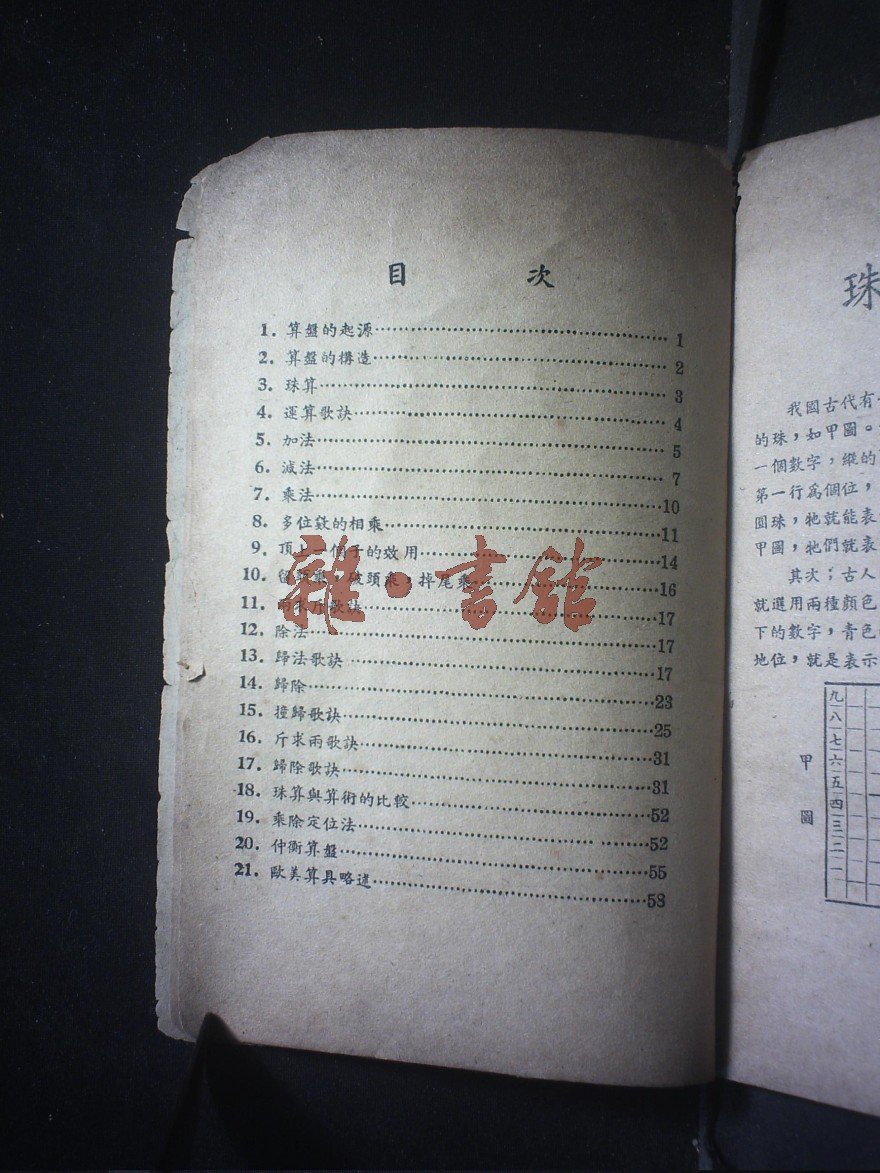 目 次
1. 算盤的起源 1
2. 算盤的構造 2
3. 珠算 3
4. 運算歌訣 4
5. 加法 5
6. 減法 7
7. 乘法 10
8. 多位數的相乘 11
9. 頂上一個子的效用 14
10. 留頭乘,破頭乘,掉尾乘 16
11. 兩求斤歌訣 17
12. 除法 17
13. 歸法歌訣 17
14. 歸除 23
15. 撞歸歌訣 25
16. 斤求兩歌訣 31
17. 歸除歌訣 31
18. 珠算與算術的比較 52
19. 乘除定位法 52
20. 仲衡算盤 55
21. 歐美算具略述 58
雜·書館
珠
我國古代有
的珠,如甲圖。
一個數字,縱的
第一行爲個位,
圓珠,牠就能表
甲圖,牠們就表
其次;古人
就選用兩種顏色
下的數字,青色
地位,就是表示
九
八
七
六
五
四
三
二
一
甲圖